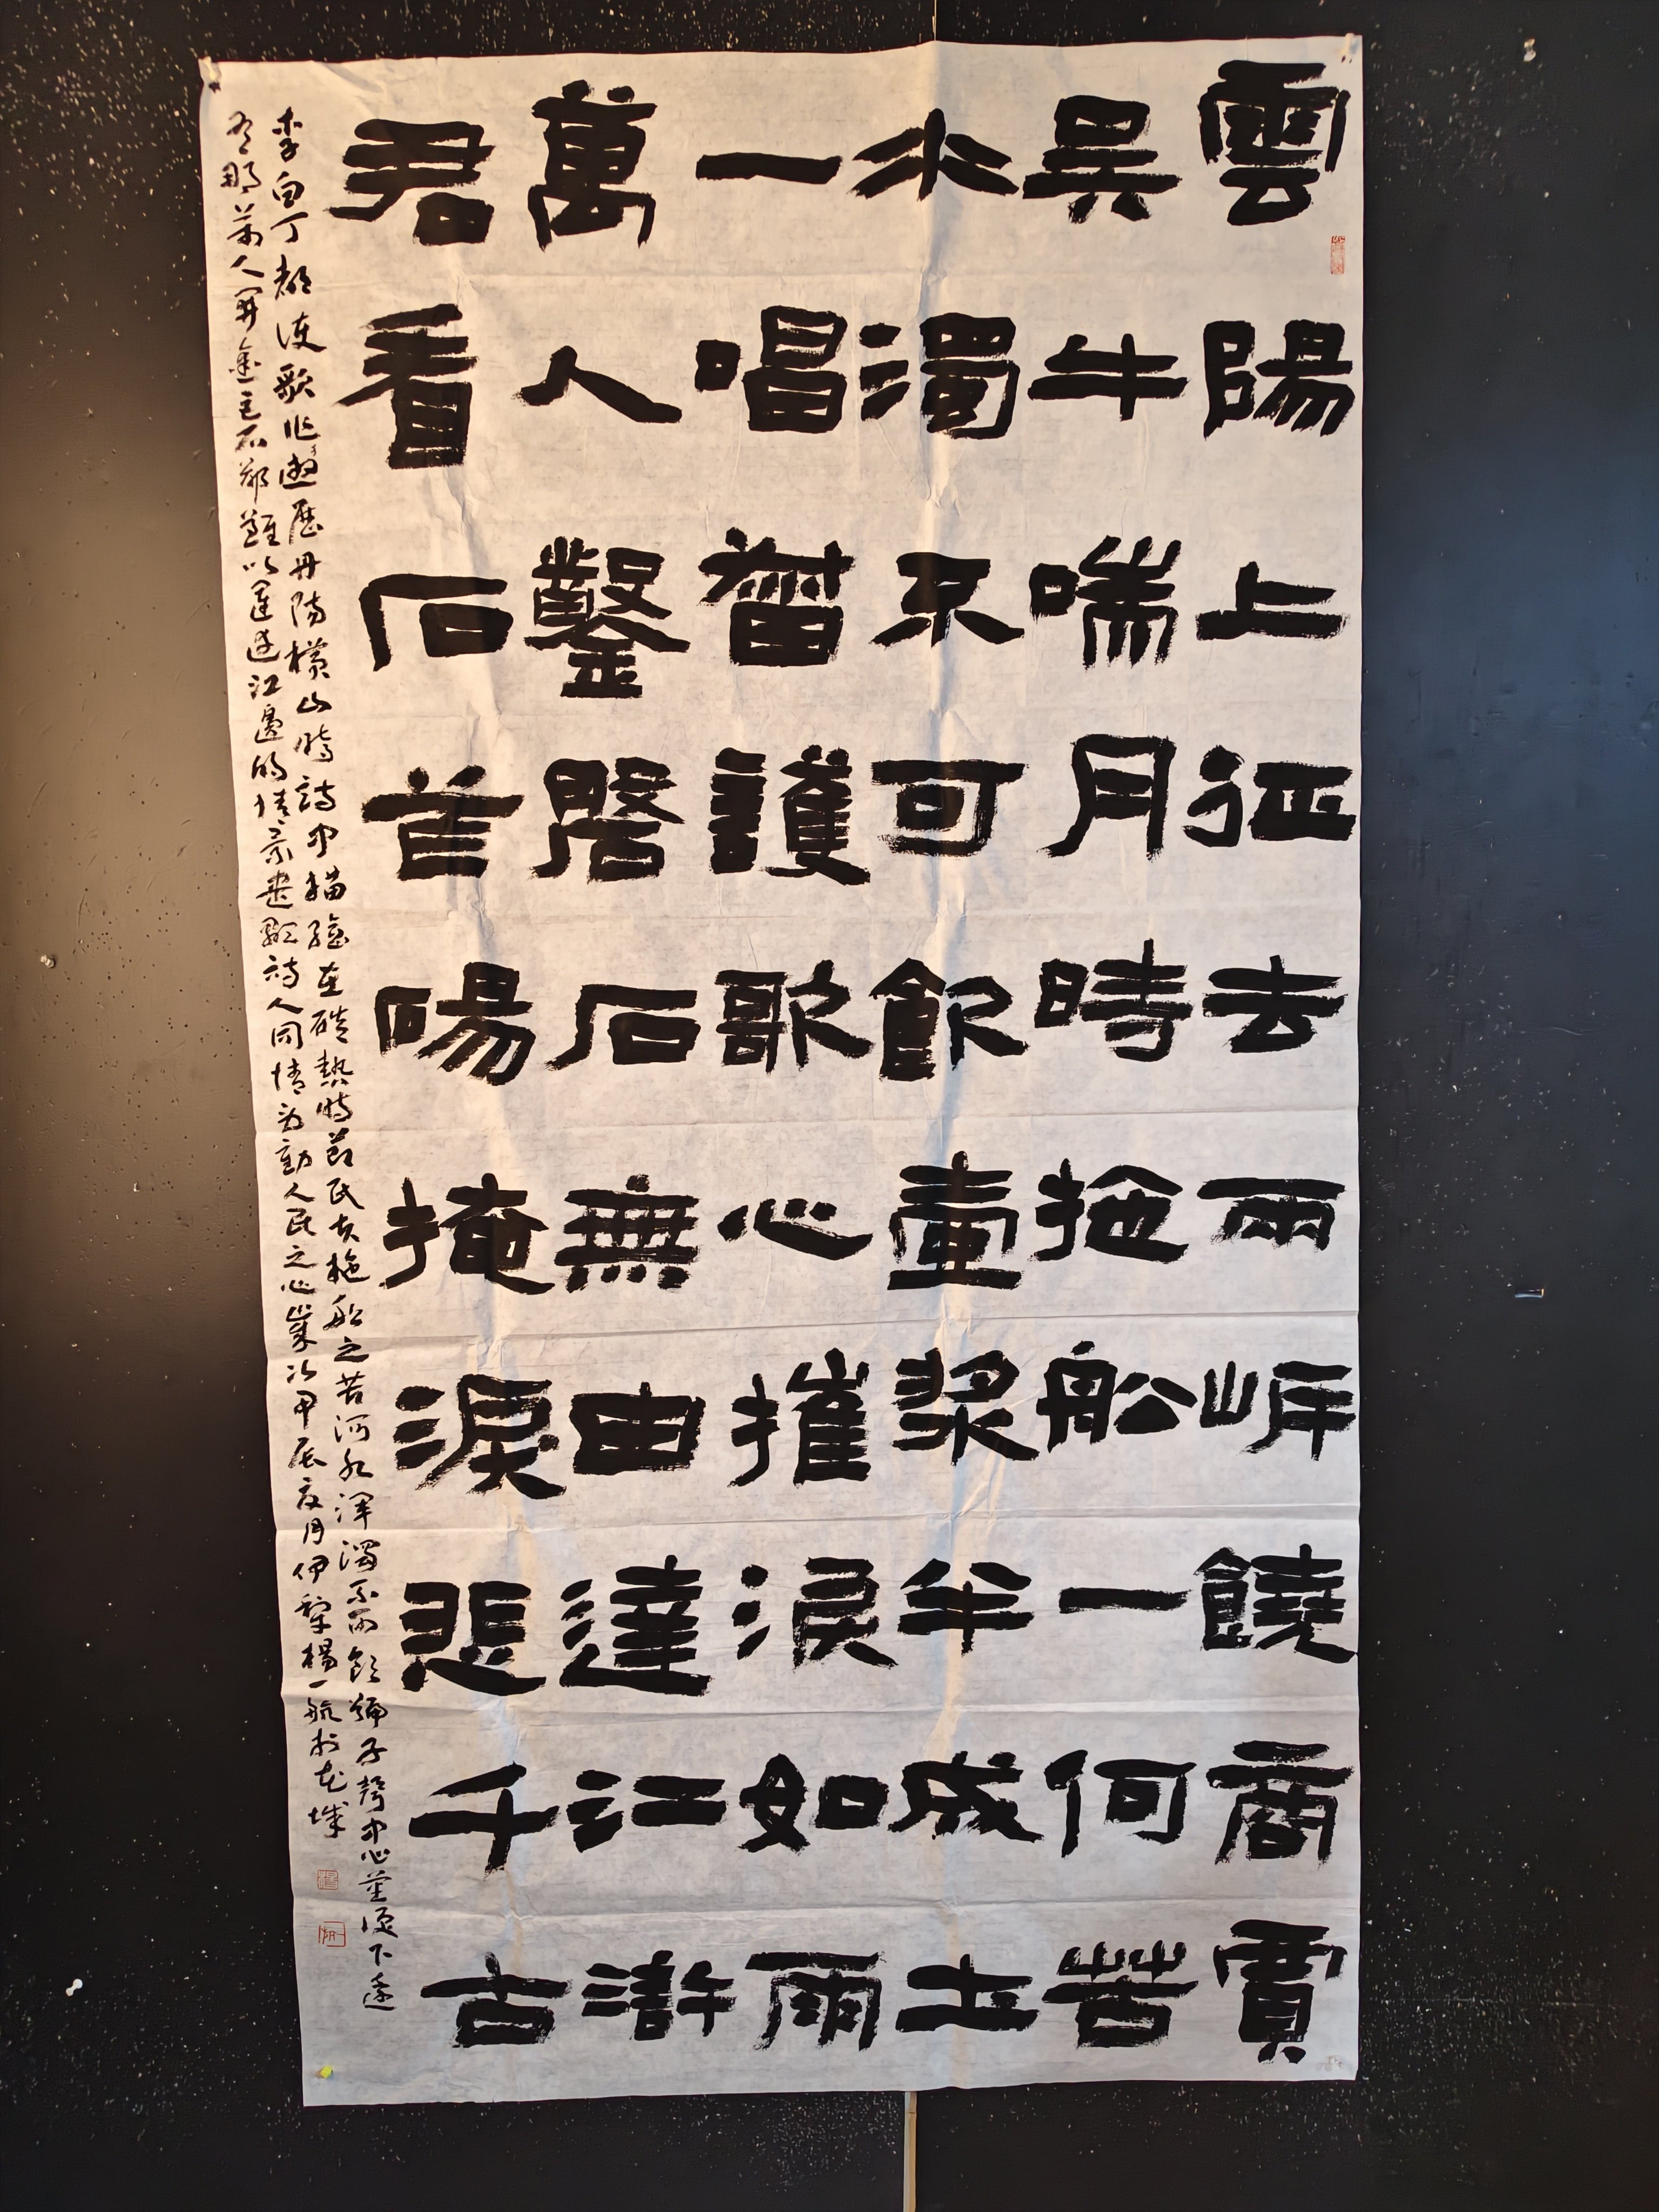 雲陽上征去兩岸饒商賈
吳牛喘月時拖船一何苦
水濁不可飲壺漿半成土
一唱督護歌心摧淚如雨
萬人鑿磐石無由達江滸
君看石芒碭掩淚悲千古
李白丁都護歌作遊歷丹陽橫山時詩中描繪在酷熱時節民夫拖船之苦河水渾濁不可飲號子聲中心淚下遙
看那萬人開鑿之石卻難以運達江邊的情景盡顯詩人同情勞動人民之心歲次甲辰夏月伊犁楊一航於花城